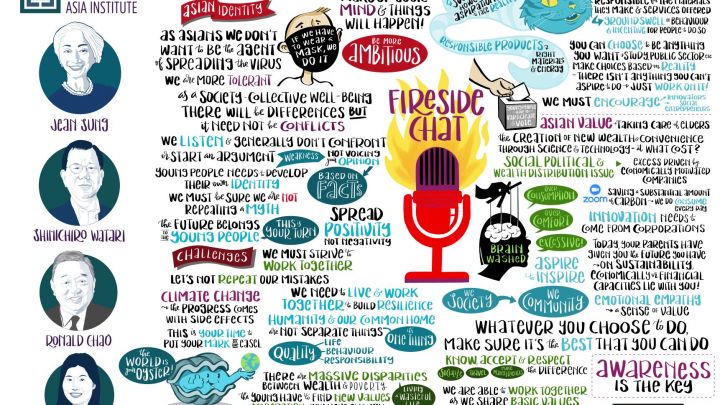 ASIA INSTITUTE
JEAN SUNG
SHINICHIRO WATARI
RONALD CHAO
ASIAN IDENTITY
AS ASIANS WE DON'T
WANT TO BE THE AGENT
OF SPREADING THE VIRUS
WE ARE MORE TOLERANT
AS A SOCIETY-COLLECTIVE WELL-BEING
THERE WILL BE DIFFERENCES BUT
IT NEED NOT BE CONFLICTS
WE LISTEN & GENERALLY DON'T CONFRONT
OR START AN ARGUMENT
WEAKNESS
NOT VOICING
OPINION
YOUNG PEOPLE NEED TO DEVELOP
THEIR OWN IDENTITY
WE MUST BE SURE WE ARE NOT
REPEATING A MYTH
BASED ON
FACTS
THE FUTURE BELONGS
TO THE YOUNG PEOPLE
THIS IS
YOUR TURN
SPREAD
POSITIVITY
NOT NEGATIVITY
CHALLENGES
WE MUST STRIVE TO
WORK TOGETHER
LET'S NOT REPEAT OUR MISTAKES
CLIMATE CHANGE
→ THE PROGRESS COMES
WITH SIDE EFFECTS
THIS IS YOUR TIME TO
PUT YOUR MARK ON EASEL
WE NEED TO LIVE & WORK
TOGETHER TO BUILD RESILIENCE
HUMANITY & OUR COMMON HOME
ARE NOT SEPARATE THINGS
ONE THING
QUALITY
LIFE
BEHAVIOUR
RESPONSIBILITY
THE WORLD IS
YOUR OYSTER!
THERE ARE MASSIVE DISPARITIES
BETWEEN WEALTH & POVERTY
THE YOUNG HAVE TO FIND NEW VALUES
LIVING A
WASTEFUL
IF WE HAVE
TO WEAR A
MASK, WE
DO IT
MIND & THINGS
WILL HAPPEN!
BE MORE
AMBITIOUS
RESPONSIBLE PRODUCTS
RIGHT
MATERIALS
& ENERGY
FIRESIDE
CHAT
GROUNDSWELL OF BEHAVIOUR
& INCENTIVE FOR PEOPLE TO DO SO
YOU CAN CHOOSE TO BE ANYTHING
YOU WANT & STUDY PUBLIC SECTOR ETC
MAKE CHOICES BASED ON REALITY
THERE ISN'T ANYTHING YOU CAN'T
ASPIRE & DO → JUST WORK ON IT!
WE MUST ENCOURAGE
INNOVATORS
SOCIAL
ENTREPRENEURS
ASIAN VALUE → TAKING CARE OF ELDERS
THE CREATION OF NEW WEALTH & CONVENIENCE
THROUGH SCIENCE & TECHNOLOGY → AT WHAT COST?
SOCIAL POLITICAL &
WEALTH DISTRIBUTION ISSUE
EXCESS DRIVEN BY
ECONOMICALLY MOTIVATED
COMPANIES
OVER
CONSUMPTION
OVER
COMFORT
EXCESSIVE!
BRAIN
WASHED
zoom
SAVING A SUBSTANTIAL AMOUNT
OF CARBON → WE DO CONSUME
EVERY DAY
INNOVATION NEEDS TO
COME FROM CORPORATIONS
ASPIRE
& INSPIRE
TODAY YOUR PARENTS HAVE
GIVEN YOU THE FUTURE YOU HAVE
→ ON SUSTAINABILITY,
ECONOMICALLY & FINANCIAL
CAPACITIES LIE WITH YOU!
WE
SOCIETY
WE
COMMUNITY
EMOTIONAL EMPATHY
→ A SENSE OF VALUE
WHATEVER YOU CHOOSE TO DO,
MAKE SURE IT'S THE BEST THAT YOU CAN DO
KNOW, ACCEPT & RESPECT
THE DIFFERENCE
TRAVEL
WE ARE ABLE TO WORK TOGETHER
AS WE SHARE BASIC VALUES
AWARENESS
IS THE KEY